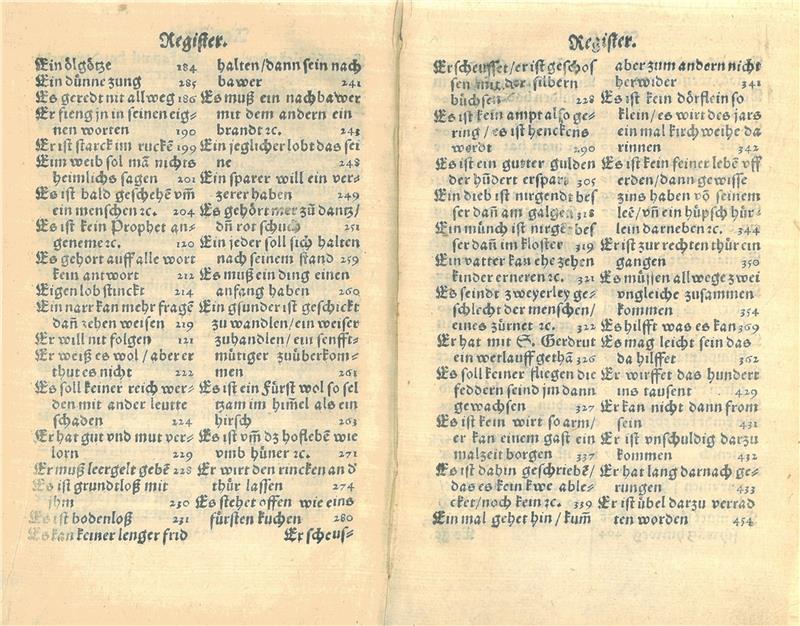 Register.
Ein ölgötze 184
Ein dünne zung 285
Es geredt nit allweg 186
Er fieng jn in seinen eig-
nen worten 190
Er ist starck im ruckē 199
Eim weib sol mā nichts
heimlichs sagen 201
Es ist bald geschehē vm̄
ein menschen ꝛc. 204
Es ist kein Prophet an-
geneme ꝛc. 120
Es gehört auff alle wort
kein antwort 212
Eigen lob stinckt 214
Ein narr kan mehr fragē
dañ zehen weisen 219
Er will nit folgen 121
Er weiß es wol / aber er
thut es nicht 222
Es soll keiner reich wer-
den mit ander leutte
schaden 224
Er hat gut vnd mut ver-
lorn 229
Er muß leergelt gebē 228
Es ist grundtloß mit
jhm 230
Es ist bodenloß 231
Es kan keiner lenger frid
halten / dann sein nach
bawer 241
Es muß ein nachbawer
mit dem andern ein
brandt ꝛc. 243
Ein jeglicher lobt das sei
ne 248
Ein sparer will ein ver-
zerer haben 249
Es gehört mer zū dantz /
dñ rot schuch 251
Ein jeder soll sich halten
nach seinem stand 259
Es muß ein ding einen
anfang haben 260
Ein gsunder ist geschickt
zu wandlen / ein weiser
zuhandlen / ein senfft-
mütiger zuüberkom-
men 261
Es ist ein Fürst wol so sel
tzam im him̄el als ein
hirsch 263
Es ist vm̄ dz hofleben wie
vmb hüner ꝛc. 271
Er wirt den rincken an d
thür lassen 274
Es stehet offen wie eins
fürsten kuchen 280
Er scheus-
Register.
Er scheusset / er ist geschos
sen mit der silbern
büchsen 228
Es ist kein ampt also ge-
ring / es ist henckens
werdt 290
Es ist ein guter gulden
der hūdert erspart 305
Ein dieb ist nirgendt bes
ser dañ am galgen 318
Ein münch ist nirgēt bes
ser dañ im kloster 319
Ein vatter kan ehe zehen
kinder erneren ꝛc. 321
Es seindt zweyerley ge-
schlecht der menschen /
eines zürnet ꝛc. 322
Er hat mit S. Gerdrut
ein wetlauff gethā 326
Es soll keiner fliegen die
feddern seind jm dann
gewachsen 327
Es ist kein wirt so arm /
er kan einem gast ein
malzeit borgen 337
Es ist dahin geschriebē /
das es kein kwe able-
cket / noch kein ꝛc. 339
Ein mal gehet hin / kum̄
aber zum andern nicht
herwider 341
Es ist kein dörflein so
klein / es wirt des jars
ein mal kirchweihe da
rinnen 342
Es ist kein feiner lebē vff
erden / dann gewisse
zins haben vō seinem
leē / vñ ein hüpsch hür-
lein darneben ꝛc. 344
Er ist zur rechten thür ein
gangen 350
Es müssen allwege zwei
vngleiche zusammen
kommen 354
Es hilfft was es kan 369
Es mag leicht sein das
da hilffet 362
Er wirffet das hundert
ins tausent 429
Er kan nicht dann from
sein 431
Er ist vnschuldig darzu
kommen 432
Er hat lang darnach ge-
rungen 433
Er ist übel darzu verrad
ten worden 454